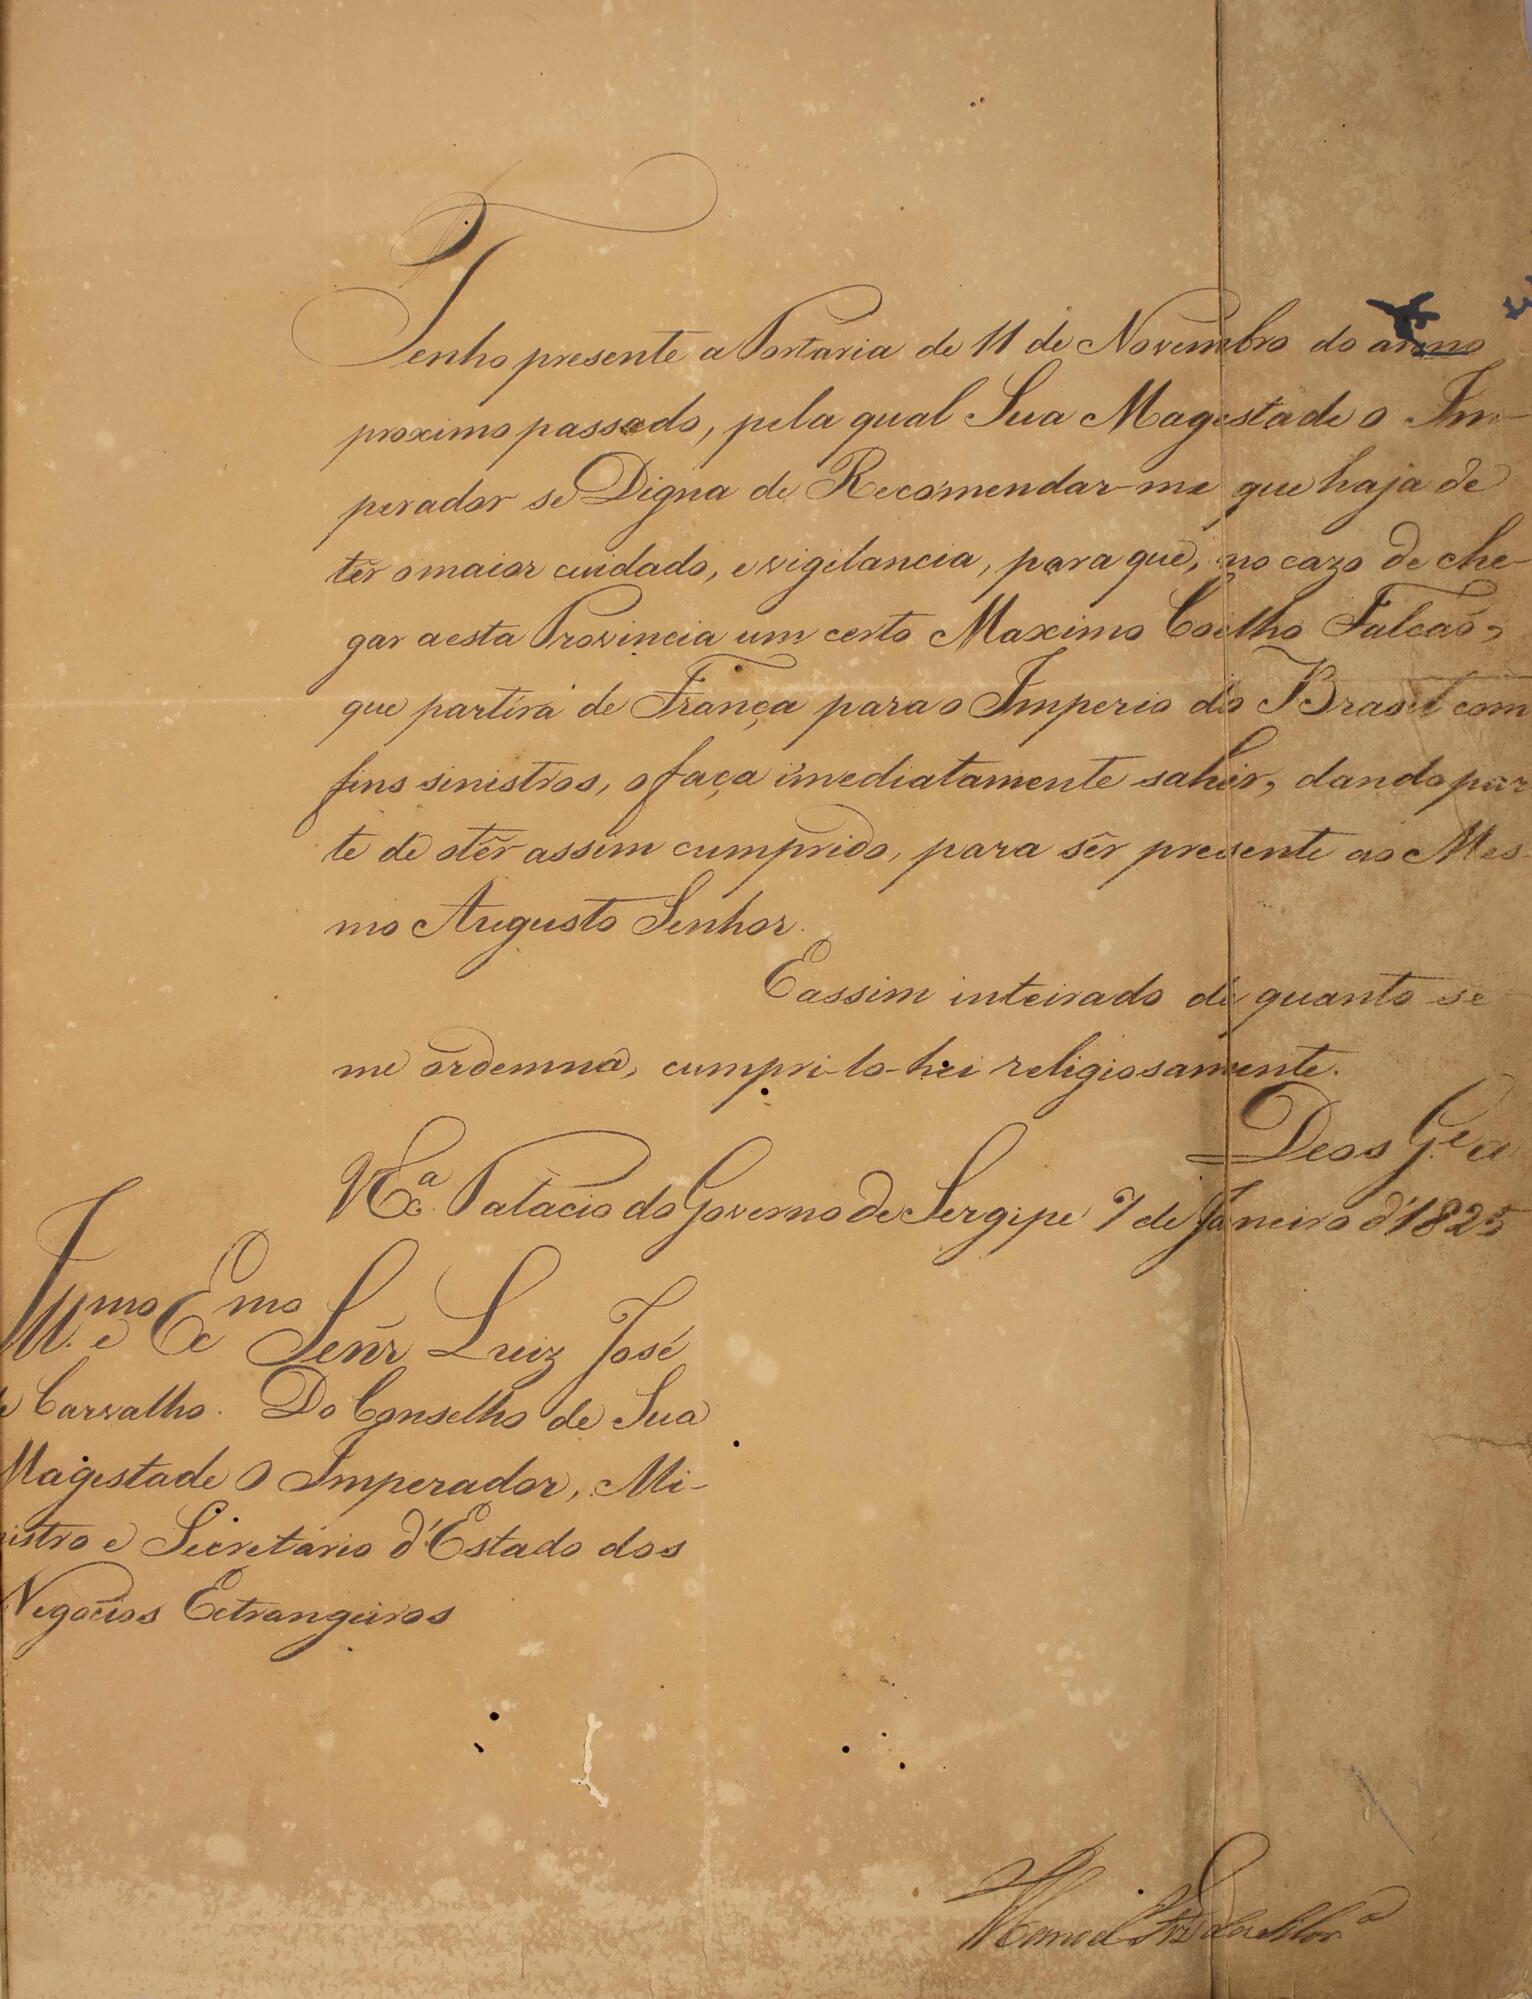 Tenho presente a Portaria de 11 de Novembro do anno
proximo passado, pela qual Sua Magestade o Im-
perador se Digna de Recomendar-me que haja de
têr o maior cuidado, e vigilancia, para que, no cazo de che-
gar a esta Provincia um certo Maximo Coelho Falcaõ,
que partirá de França para o Imperio do Brasil com
fins sinistros, o faça imediatamente sahir, dando par
te de o têr assim cumprido, para sêr presente ao Mes-
mo Augusto Senhor.
E assim inteirado de quanto se
me ordemna, cumpri-lo-hei religiosamente.
Deos G.e a
V Ex.a Palacio do Governo de Sergipe 7 de Janeiro d'1825
Ill.mo e Ex.mo Senr Luiz José
de Carvalho. Do Conselho de Sua
Magestade O Imperador, Mi-
nistro e Secretario d'Estado dos
Negocios Estrangeiros
Manoel da Silvr.a